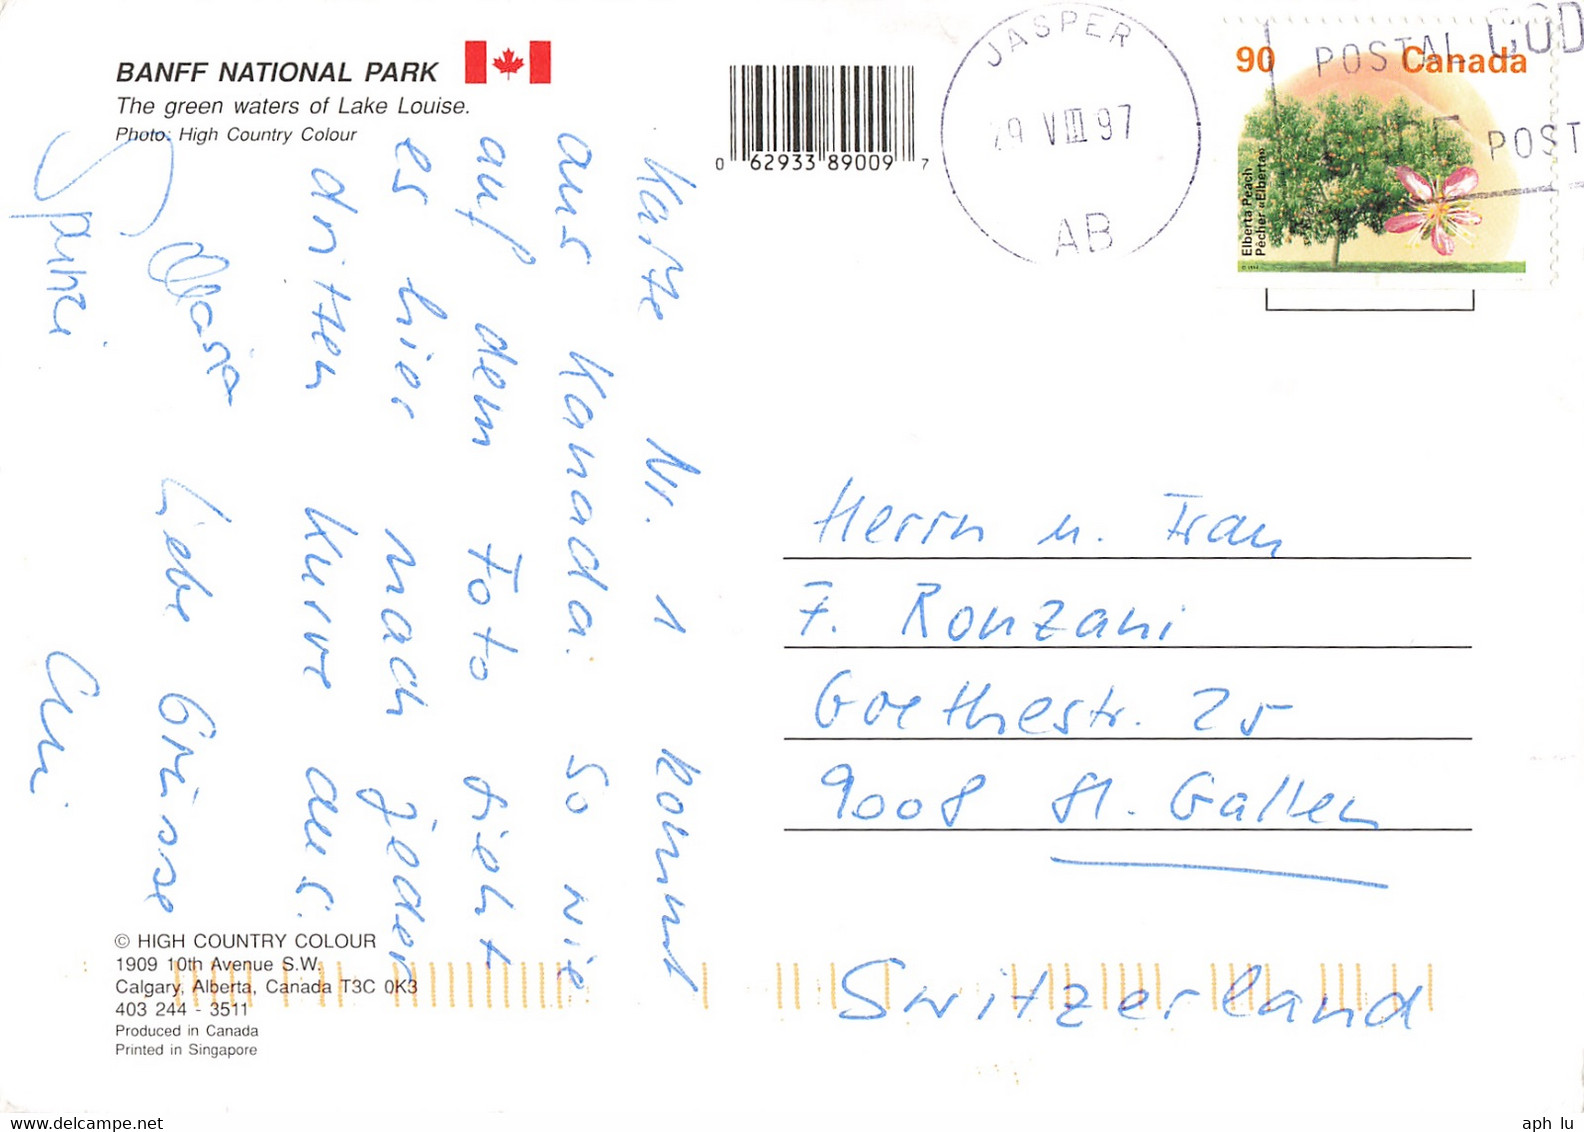 BANFF NATIONAL PARK
The green waters of Lake Louise.
Photo: High Country Colour
0 62933 89009 7
JASPER
29 VIII 97
AB
POSTAL COD
POST
90 Canada
Elberta Peach
Pêcher «Elberta»
Karte Nr. 1 kommt
aus Kanada. So wie
auf dem Foto sieht
es hier nach jeder
dritten Kurve aus.
Liebe Grüsse
Herrn u. Frau
F. Ronzani
Goethestr. 25
9008 St. Gallen
Switzerland
© HIGH COUNTRY COLOUR
1909 10th Avenue S.W.
Calgary, Alberta, Canada T3C 0K3
403 244 - 3511
Produced in Canada
Printed in Singapore
aph lu